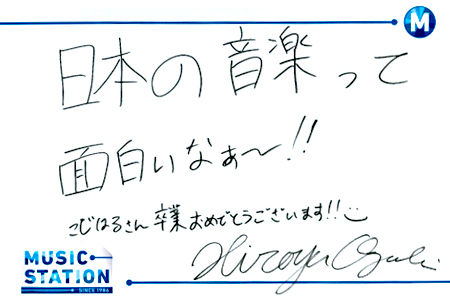 M
日本の音楽って
面白いなぁ〜!!
こじはるさん卒業おめでとうございます!!
MUSIC
STATION
SINCE 1986